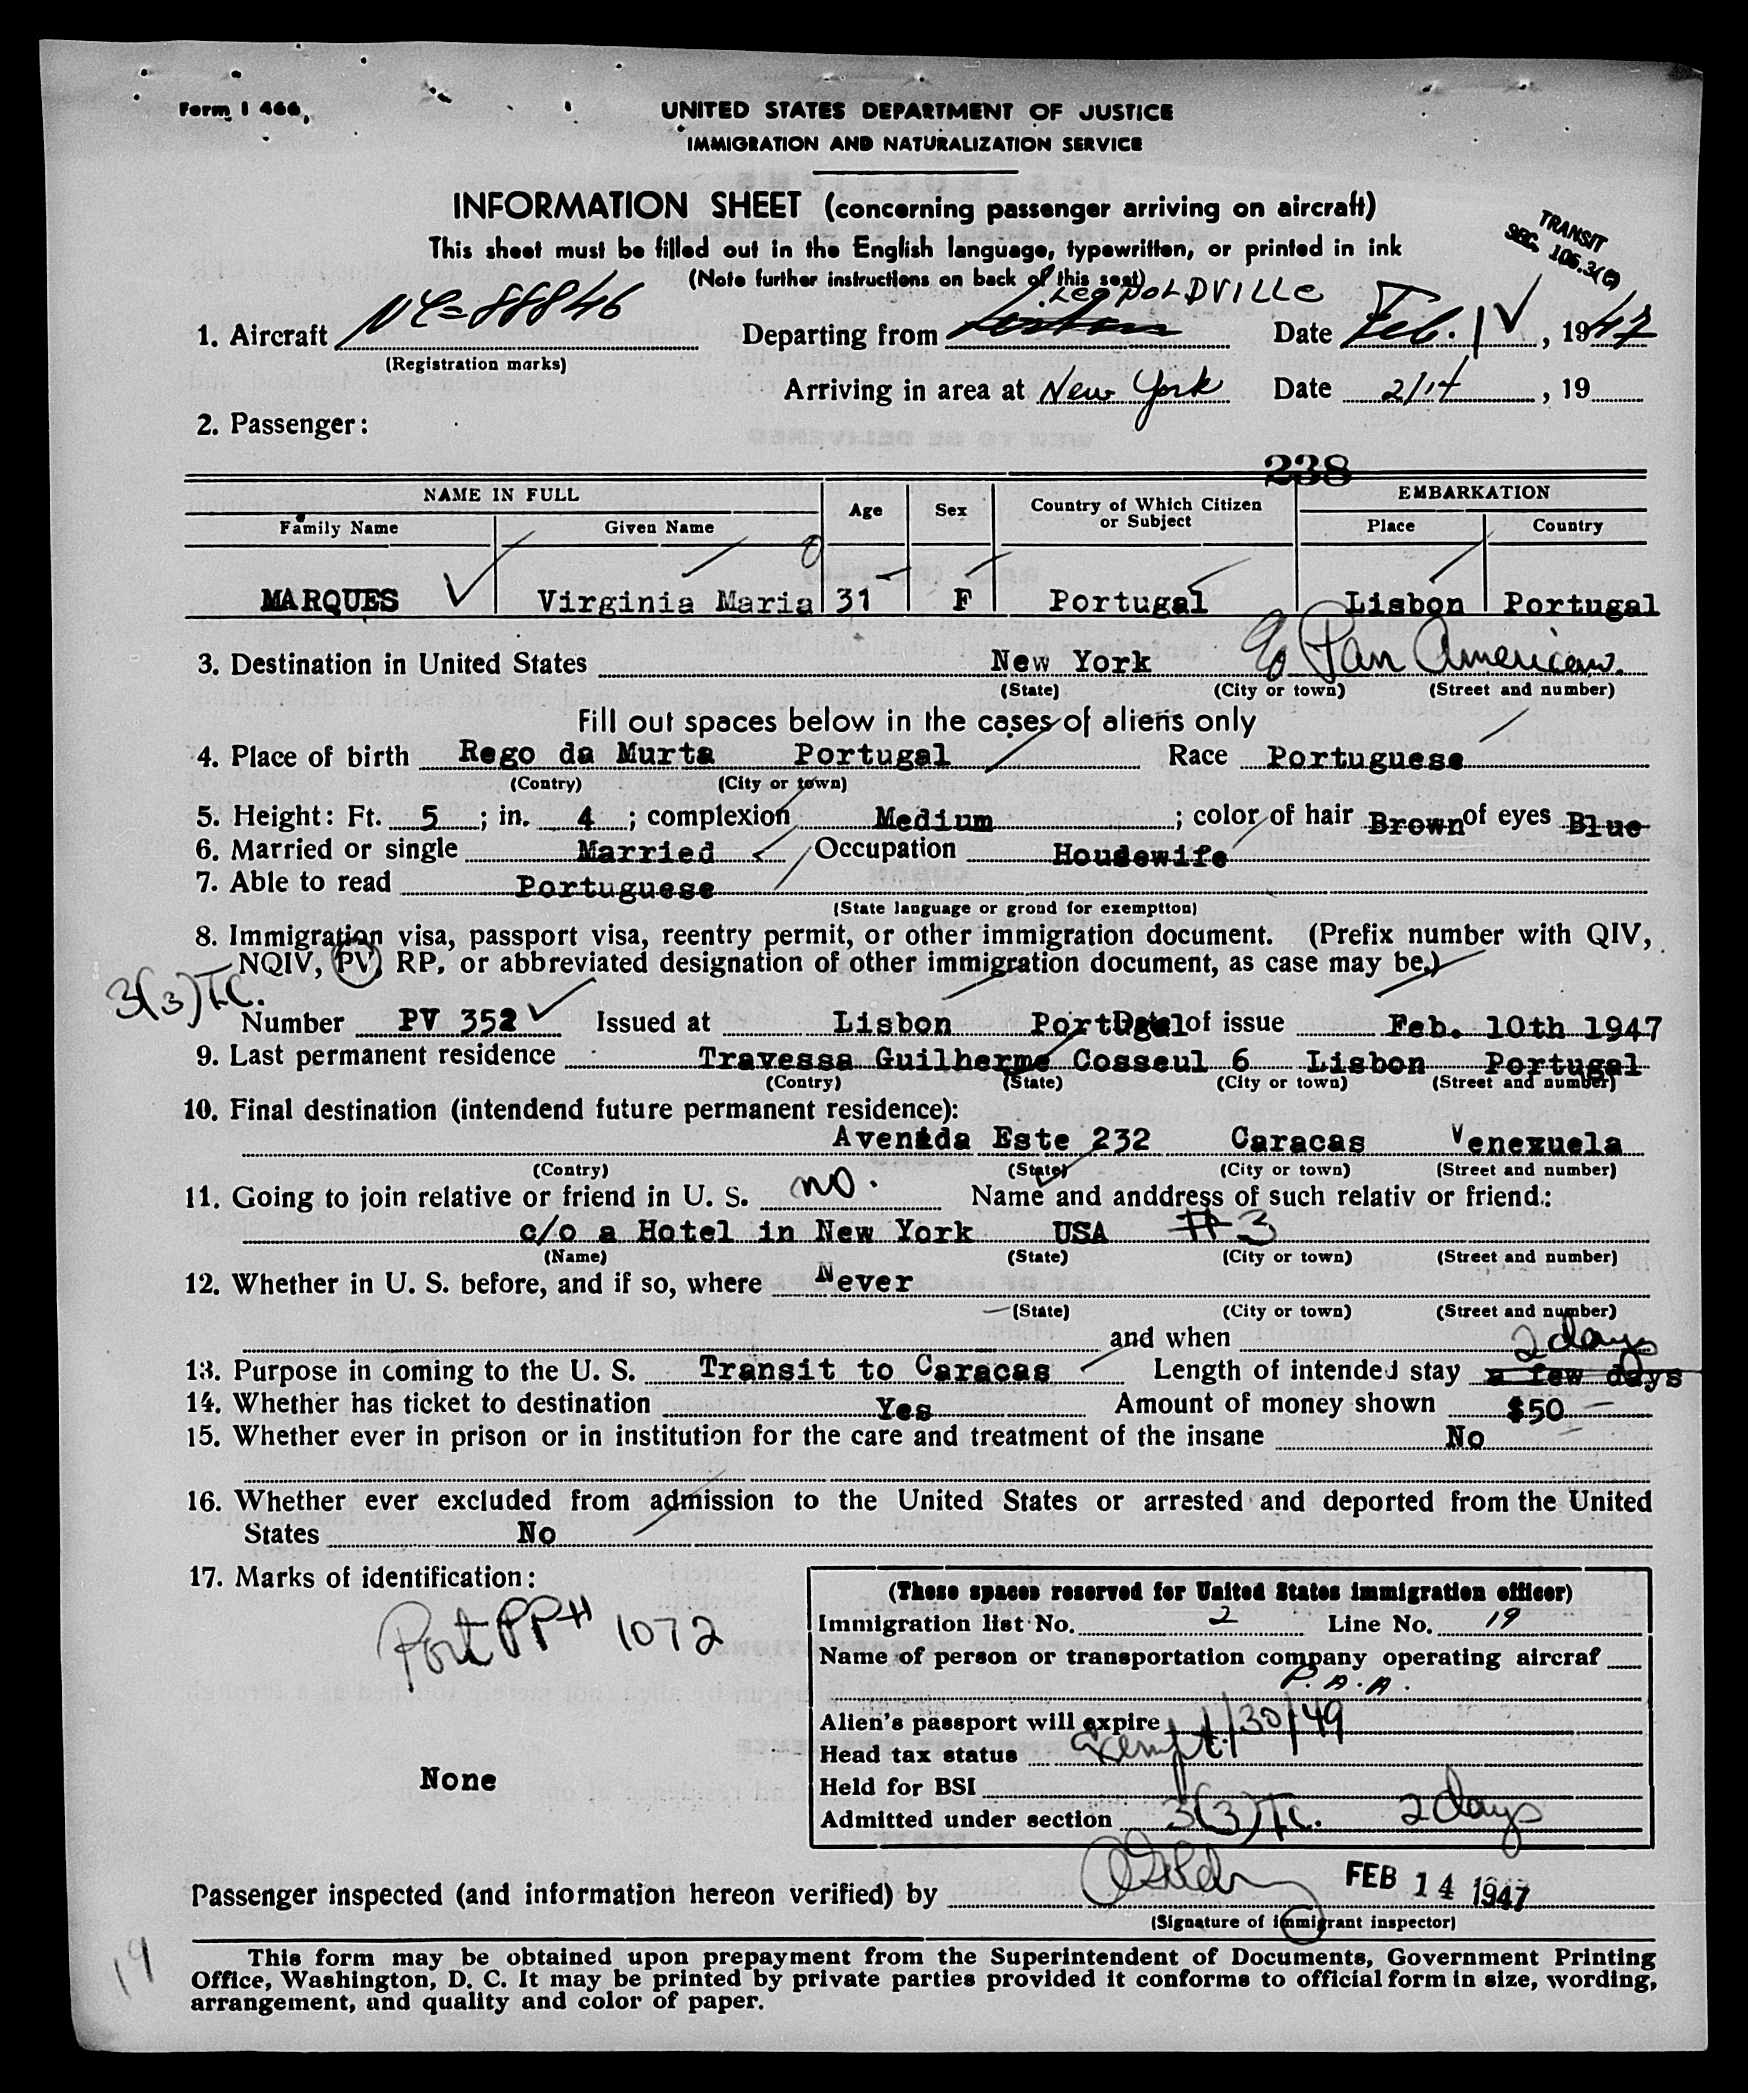 Form I 466
UNITED STATES DEPARTMENT OF JUSTICE
IMMIGRATION AND NATURALIZATION SERVICE
INFORMATION SHEET (concerning passenger arriving on aircraft)
TRANSIT
SEC. 106.3(c)
This sheet must be filled out in the English language, typewritten, or printed in ink
(Note further instructions on back of this seet)
LEOPOLDVILLE
1. Aircraft NC-88846 Departing from Date Feb. 1, 1947
(Registration marks)
Arriving in area at New York Date 2/14, 19
2. Passenger:
238
NAME IN FULL Age Sex Country of Which Citizen or Subject EMBARKATION
Family Name Given Name Place Country
MARQUES Virginia Maria 31 F Portugal Lisbon Portugal
3. Destination in United States New York c/o Pan American.
(State) (City or town) (Street and number)
Fill out spaces below in the cases of aliens only
4. Place of birth Rego da Murta Portugal Race Portuguese
(Contry) (City or town)
5. Height: Ft. 5; in. 4; complexion Medium; color of hair Brown of eyes Blue
6. Married or single Married Occupation Housewife
7. Able to read Portuguese
(State language or grond for exemptton)
8. Immigration visa, passport visa, reentry permit, or other immigration document. (Prefix number with QIV,
NQIV, PV, RP, or abbreviated designation of other immigration document, as case may be.)
3(3) T.C.
Number PV 352 Issued at Lisbon Portugal Date of issue Feb. 10th 1947
9. Last permanent residence Travessa Guilherme Cosseul 6 Lisbon Portugal
(Contry) (State) (City or town) (Street and number)
10. Final destination (intendend future permanent residence):
Avenida Este 232 Caracas Venezuela
(Contry) (State) (City or town) (Street and number)
11. Going to join relative or friend in U. S. no. Name and anddress of such relativ or friend.:
c/o a Hotel in New York USA #3
(Name) (State) (City or town) (Street and number)
12. Whether in U. S. before, and if so, where Never
(State) (City or town) (Street and number)
and when
2 days
13. Purpose in coming to the U. S. Transit to Caracas Length of intended stay a few days
14. Whether has ticket to destination Yes Amount of money shown $50
15. Whether ever in prison or in institution for the care and treatment of the insane No
16. Whether ever excluded from admission to the United States or arrested and deported from the United
States No
17. Marks of identification:
Port PP# 1072
None
(These spaces reserved for United States immigration officer)
Immigration list No. 2 Line No. 19
Name of person or transportation company operating aircraf
P.A.A.
Alien's passport will expire 1/30/49
Head tax status Exempt.
Held for BSI
Admitted under section 3(3) T.C. 2 days
Passenger inspected (and information hereon verified) by FEB 14 1947
(Signature of immigrant inspector)
19
This form may be obtained upon prepayment from the Superintendent of Documents, Government Printing
Office, Washington, D. C. It may be printed by private parties provided it conforms to official form in size, wording,
arrangement, and quality and color of paper.